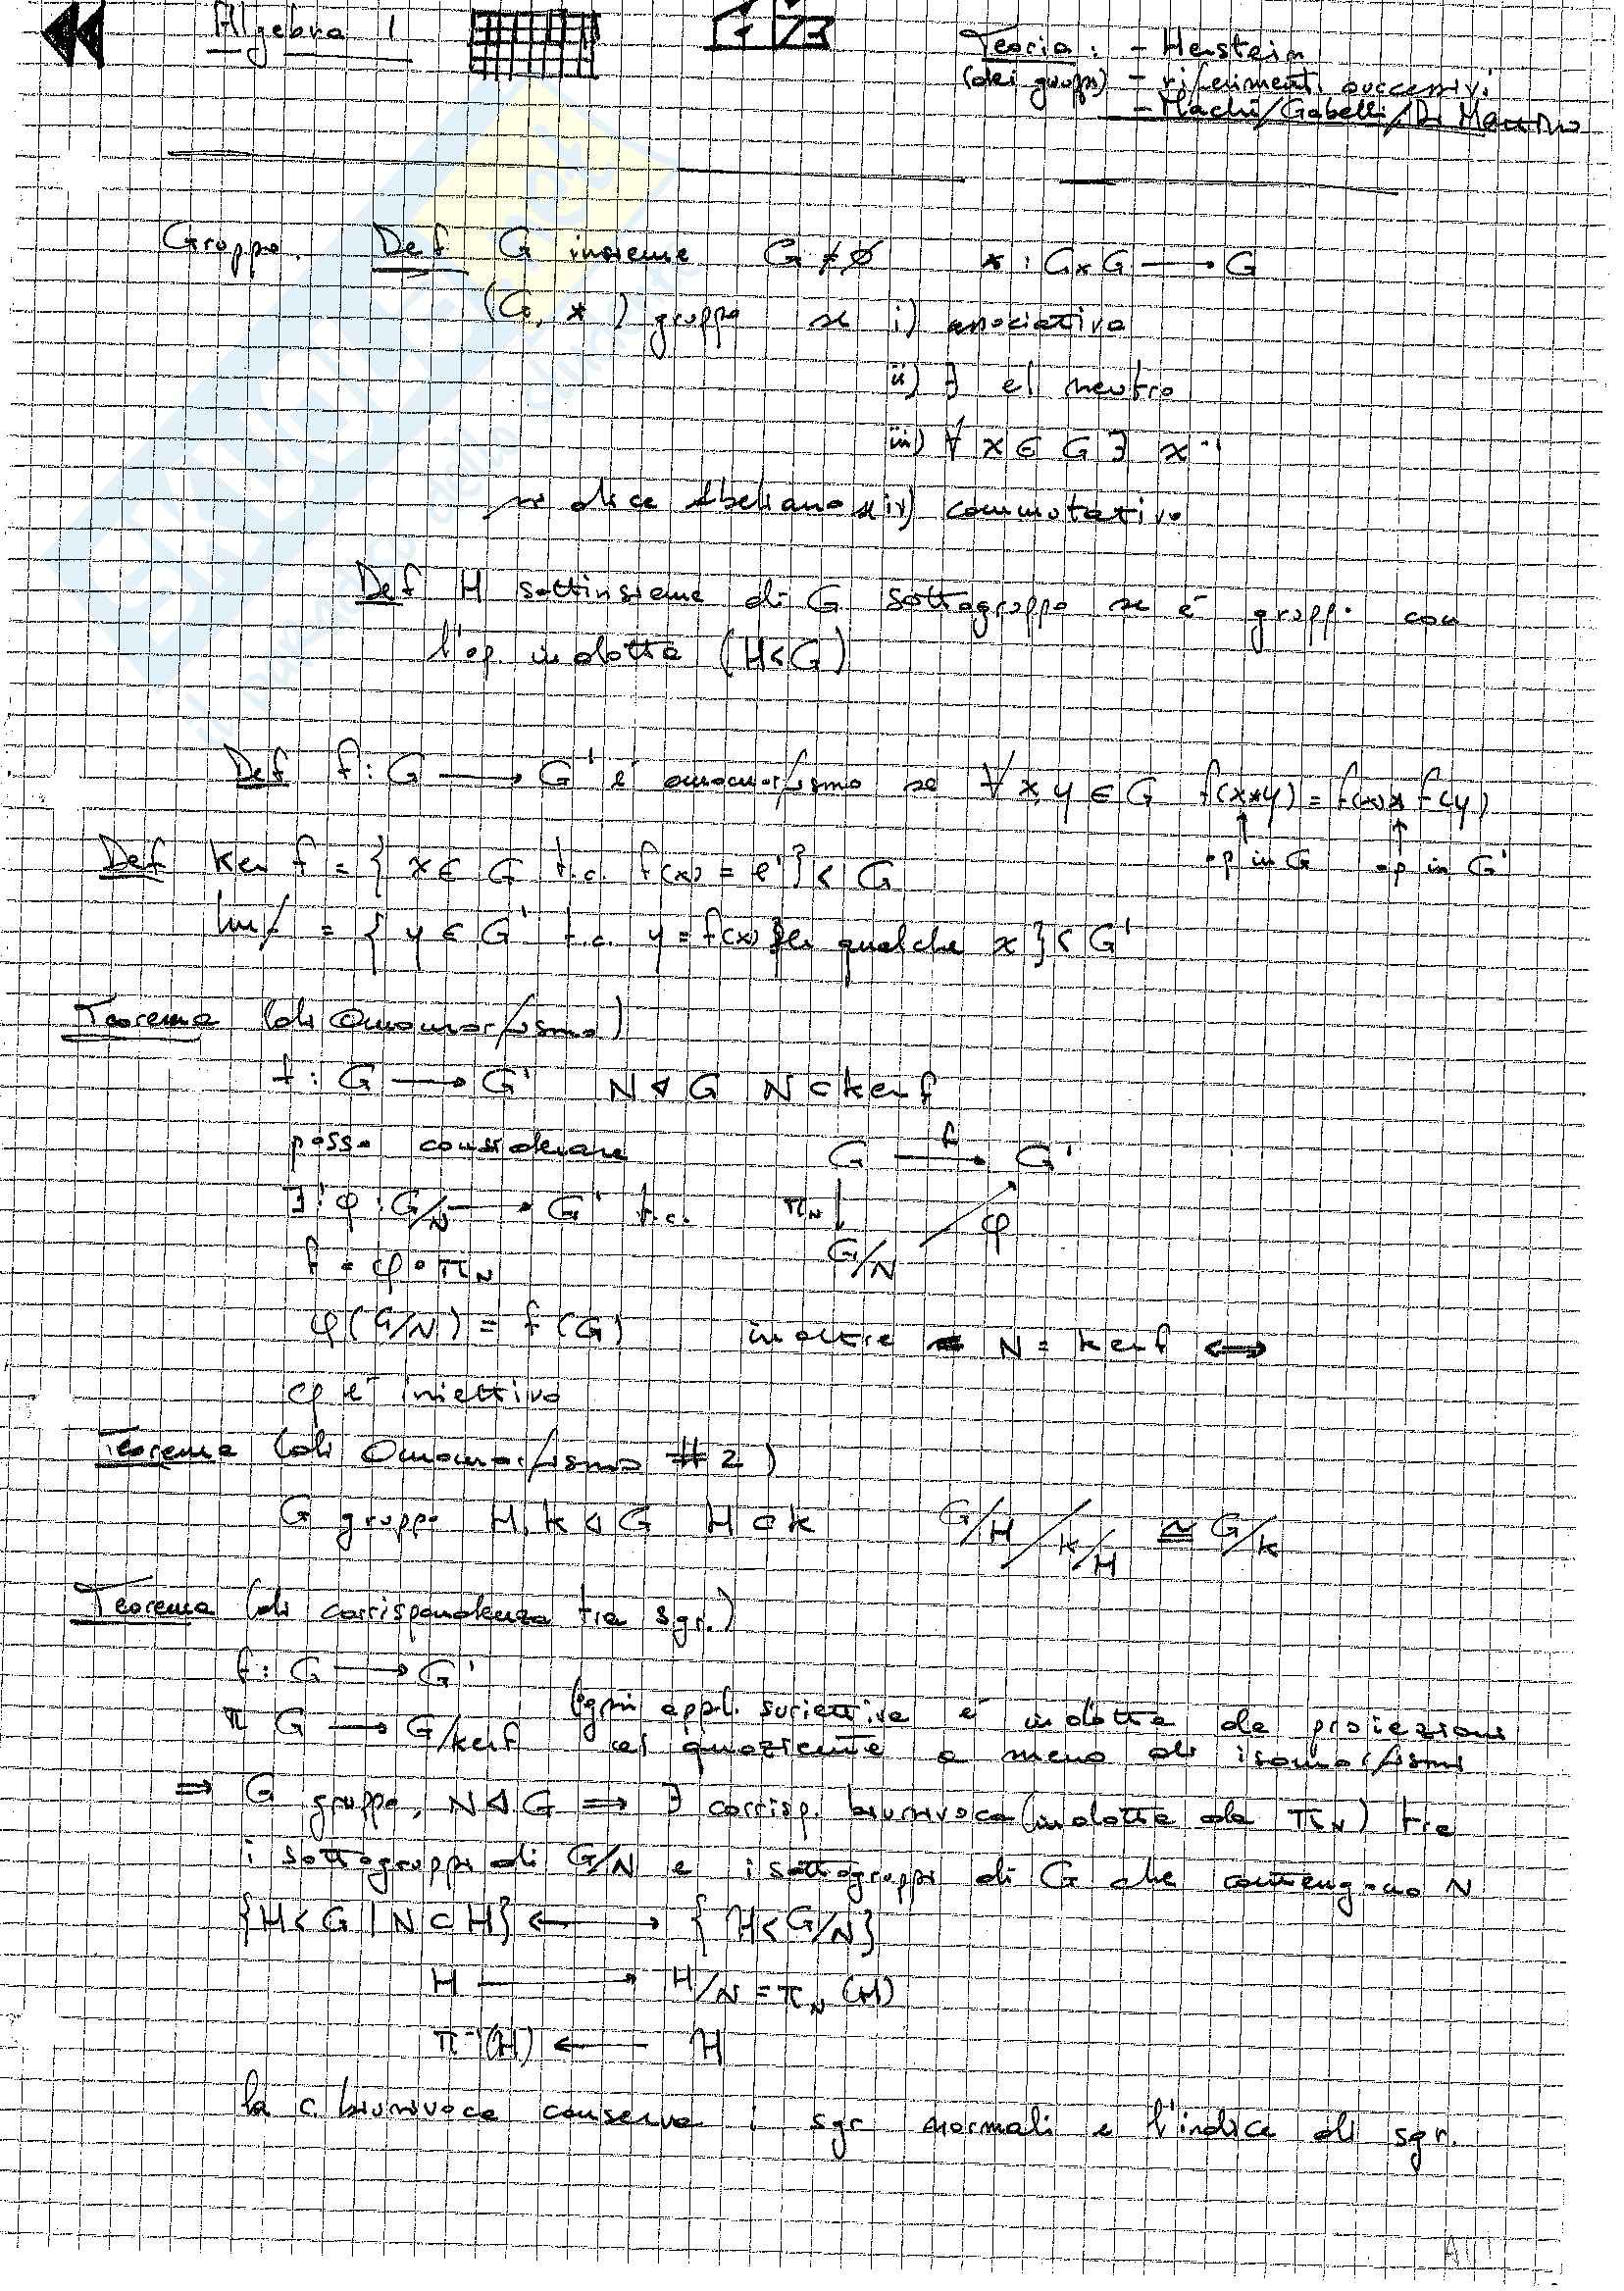 Algebra 1
Teoria: - Herstein
(dei gruppi) - riferimenti successivi
- Machì/Gabelli/Di Martino
Gruppo. Def G insieme G ≠ ∅ * : G x G → G
(G, *) gruppo se i) associativa
ii) ∃ el neutro
iii) ∀ x ∈ G ∃ x⁻¹
si dice Abeliano se iv) commutativo
Def H sottinsieme di G sottogruppo se è gruppo con
l'op. indotta (H < G)
Def f: G → G' è omomorfismo se ∀ x,y ∈ G f(x*y) = f(x)*f(y)
op in G op in G'
Def ker f = { x ∈ G t.c. f(x) = e' } < G
Im f = { y ∈ G' t.c. y = f(x) per qualche x } < G'
Teorema (di Omomorfismo)
f: G → G' N ◁ G N ⊂ ker f
posso considerare G →f G'
∃! φ : G/N → G' t.c. π_N ↓ φ
f = φ∘π_N G/N
φ(G/N) = f(G) inoltre N = ker f ⟺
φ è iniettivo
Teorema (di Omomorfismo #2)
G gruppo H, K ◁ G H ⊂ K G/H / K/H ≅ G/K
Teorema (di corrispondenza tra sgr.)
f: G → G'
π G → G/ker f Ogni appl. suriettiva è indotta da proiezioni
al quoziente a meno di isomorfismi
⟹ G gruppo, N ◁ G ⟹ ∃ corrisp. biunivoca (indotta da π_N) tra
i sottogruppi di G/N e i sottogruppi di G che contengono N
{H < G | N ⊂ H} ⟷ { H < G/N }
H → H/N = π_N(H)
π⁻¹(H) ← H
la c. biunivoca conserva i sgr normali e l'indice di sgr.